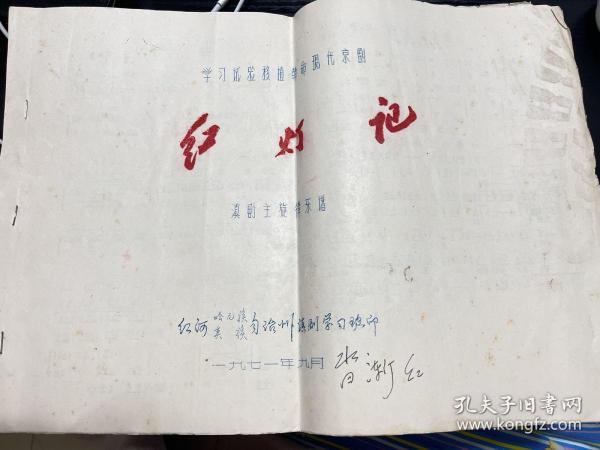 学习试验移植革命现代京剧
红灯记
滇剧主旋律乐谱
红河哈尼族彝族自治州滇剧学习班印
一九七一年九月
孔夫子旧书网